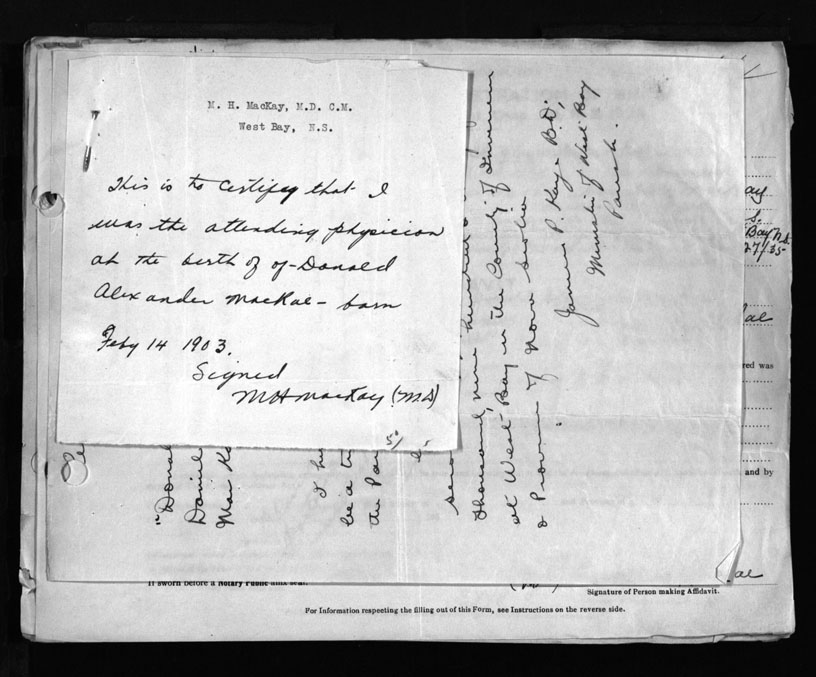 M. H. MacKay, M.D. C.M.
West Bay, N.S.
This is to certify that I
was the attending physician
at the birth of of Donald
Alexander MacRae - born
Feby 14 1903.
Signed
MH MacKay (M.D)
"Donal
Daniel
Mar
I hu
be a tr
the Par
thousand, nine hundred
at West Bay in the County of Inverness
& Province of Nova Scotia
James P. Kaye B.D.,
Minister of West Bay
Parish.
ay
S.
Bay N.S.
27/35
ae
red was
and by
ae
If sworn before a Notary Public
Signature of Person making Affidavit.
For Information respecting the filling out of this Form, see Instructions on the reverse side.